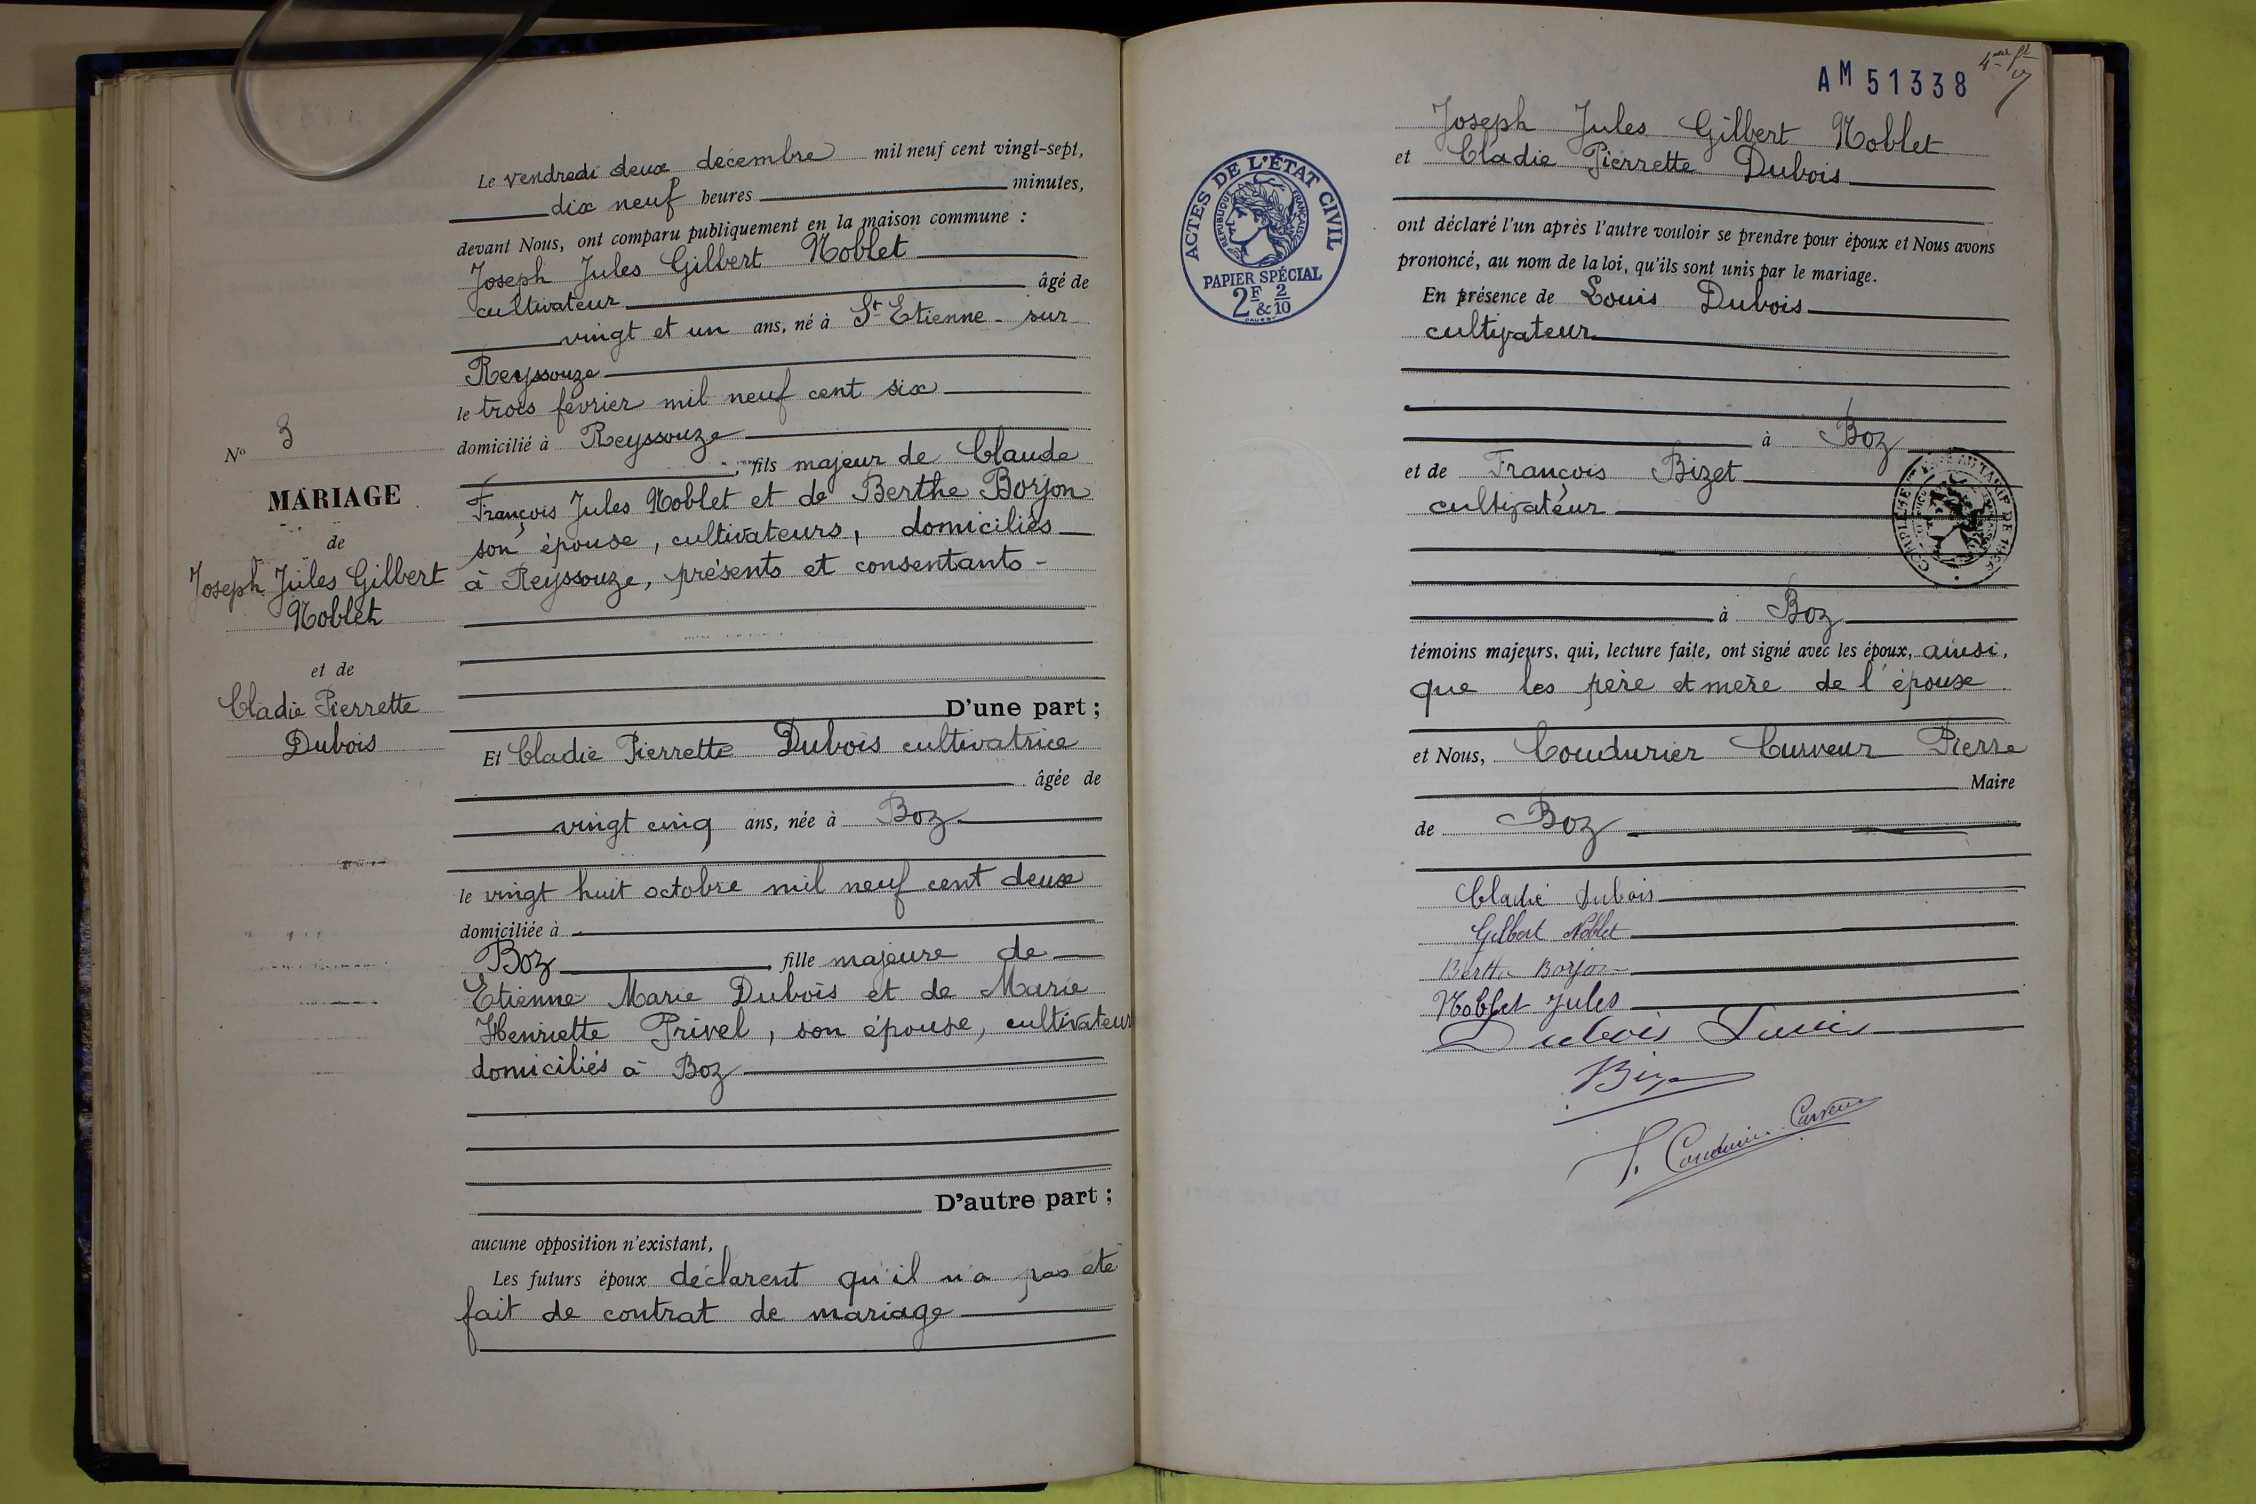 Le vendredi deux décembre mil neuf cent vingt-sept,
dix neuf heures minutes,
devant Nous, ont comparu publiquement en la maison commune :
Joseph Jules Gilbert Noblet
cultivateur âgé de
vingt et un ans, né à St Etienne-sur
Reyssouze
le trois février mil neuf cent six
domicilié à Reyssouze
, fils majeur de Claude
François Jules Noblet et de Berthe Borjon
son épouse, cultivateurs, domiciliés
à Reyssouze, présents et consentants -
D'une part ;
Et Cladie Pierrette Dubois cultivatrice
âgée de
vingt cinq ans, née à Boz
le vingt huit octobre mil neuf cent deux
domiciliée à
Boz fille majeure de
Etienne Marie Dubois et de Marie
Henriette Privel, son épouse, cultivateurs
domiciliés à Boz
D'autre part ;
aucune opposition n'existant,
Les futurs époux déclarent qu'il n'a pas été
fait de contrat de mariage
No 3
MARIAGE
de
Joseph Jules Gilbert
Noblet
et de
Cladie Pierrette
Dubois
AM 51338
ACTES DE L'ÉTAT CIVIL
RÉPUBLIQUE FRANÇAISE
PAPIER SPÉCIAL
2F & 2/10
Joseph Jules Gilbert Noblet
et Cladie Pierrette Dubois
ont déclaré l'un après l'autre vouloir se prendre pour époux et Nous avons
prononcé, au nom de la loi, qu'ils sont unis par le mariage.
En présence de Louis Dubois
cultivateur
à Boz
et de François Bizet
cultivateur
à Boz
témoins majeurs, qui, lecture faite, ont signé avec les époux, ainsi,
que les père et mère de l'épouse
et Nous, Coudurier Curveur Pierre
Maire
de Boz
Cladie Dubois
Gilbert Noblet
Berthe Borjon
Noblet Jules
Dubois Louis
P. Coudurier Curveur